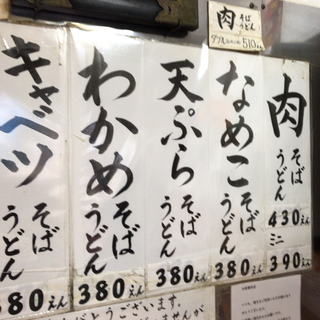 肉 そば うどん
510えん
肉 そば うどん
430えん
ミニ
390えん
なめこ そば うどん
380えん
天ぷら そば うどん
380えん
わかめ そば うどん
380えん
キャベツ そば うどん
380えん
ございます。